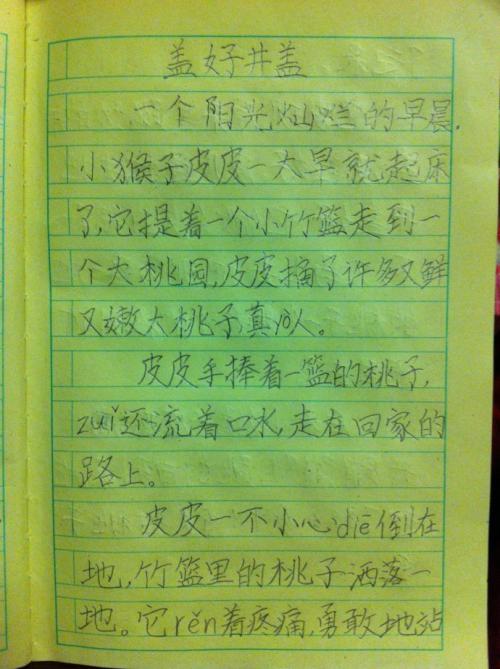 盖好井盖
一个阳光灿烂的早晨,
小猴子皮皮一大早就起床
了,它提着一个小竹篮走到一
个大桃园,皮皮摘了许多又鲜
又嫩大桃子,真人。
皮皮手捧着一篮的桃子,
zuǐ还流着口水,走在回家的
路上。
皮皮一不小心diē倒在
地,竹篮里的桃子洒落一
地。它rěn着疼痛,勇敢地站